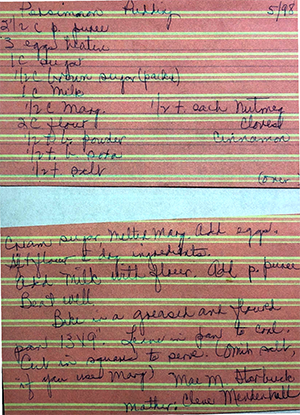 Persimmon Pudding 5/98
2 1/2 C p. puree
3 eggs beaten
1 C sugar
1/2 C brown sugar (packed)
1 C Milk
1/2 C Marg. 1/2 t. each Nutmeg
2 C flour Cloves
1/2 t. b. powder Cinnamon
1/2 t. b. soda
1/2 t. salt
(over)
Cream sugar, melted Marg. Add eggs.
Sift flour & dry ingredients.
Add Milk with flour. Add p. puree
Beat well.
Bake in a greased and floured
pan 13x9". Leave in pan to cool.
Cut in squares to serve. (Omit salt,
if you use Marg) Mae M. Starbuck
Mother, Clara Mendenhall